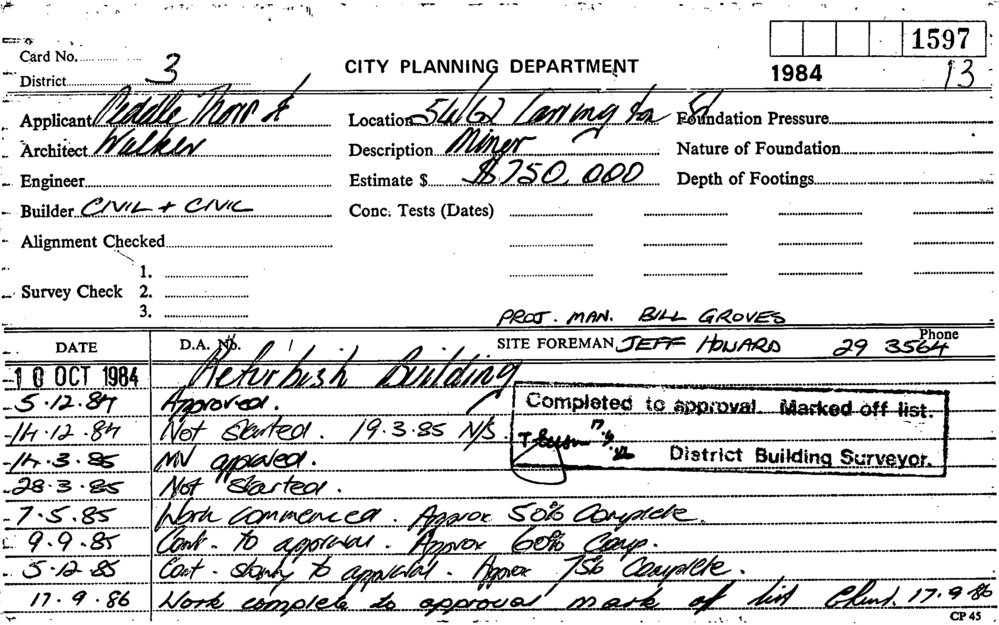 1597
Card No.
CITY PLANNING DEPARTMENT
1984 13
District 3
Applicant Peddle Thorp & Location 54/62 Carrington St Foundation Pressure
Architect Walker Description Minor Nature of Foundation
Engineer Estimate $ $750,000 Depth of Footings
Builder CIVIL + CIVIC Conc. Tests (Dates)
Alignment Checked
1.
Survey Check 2.
3.
PROJ. MAN. BILL GROVES
DATE D.A. No. / SITE FOREMAN JEFF HOWARD Phone 29 3564
10 OCT 1984 Refurbish Building
5.12.84 Approved.
14.12.84 Not Started. 19.3.85 N/S
14.3.85 MV approved.
28.3.85 Not Started.
Completed to approval. Marked off list.
District Building Surveyor.
7.5.85 Work commenced. Approx 50% Complete.
9.9.85 Cont. to approval. Approx 60% Comp.
5.12.85 Cont. slowly to approval. Approx 75% Complete.
17.9.86 Work complete to approval mark of list 17.9.86
CP 45